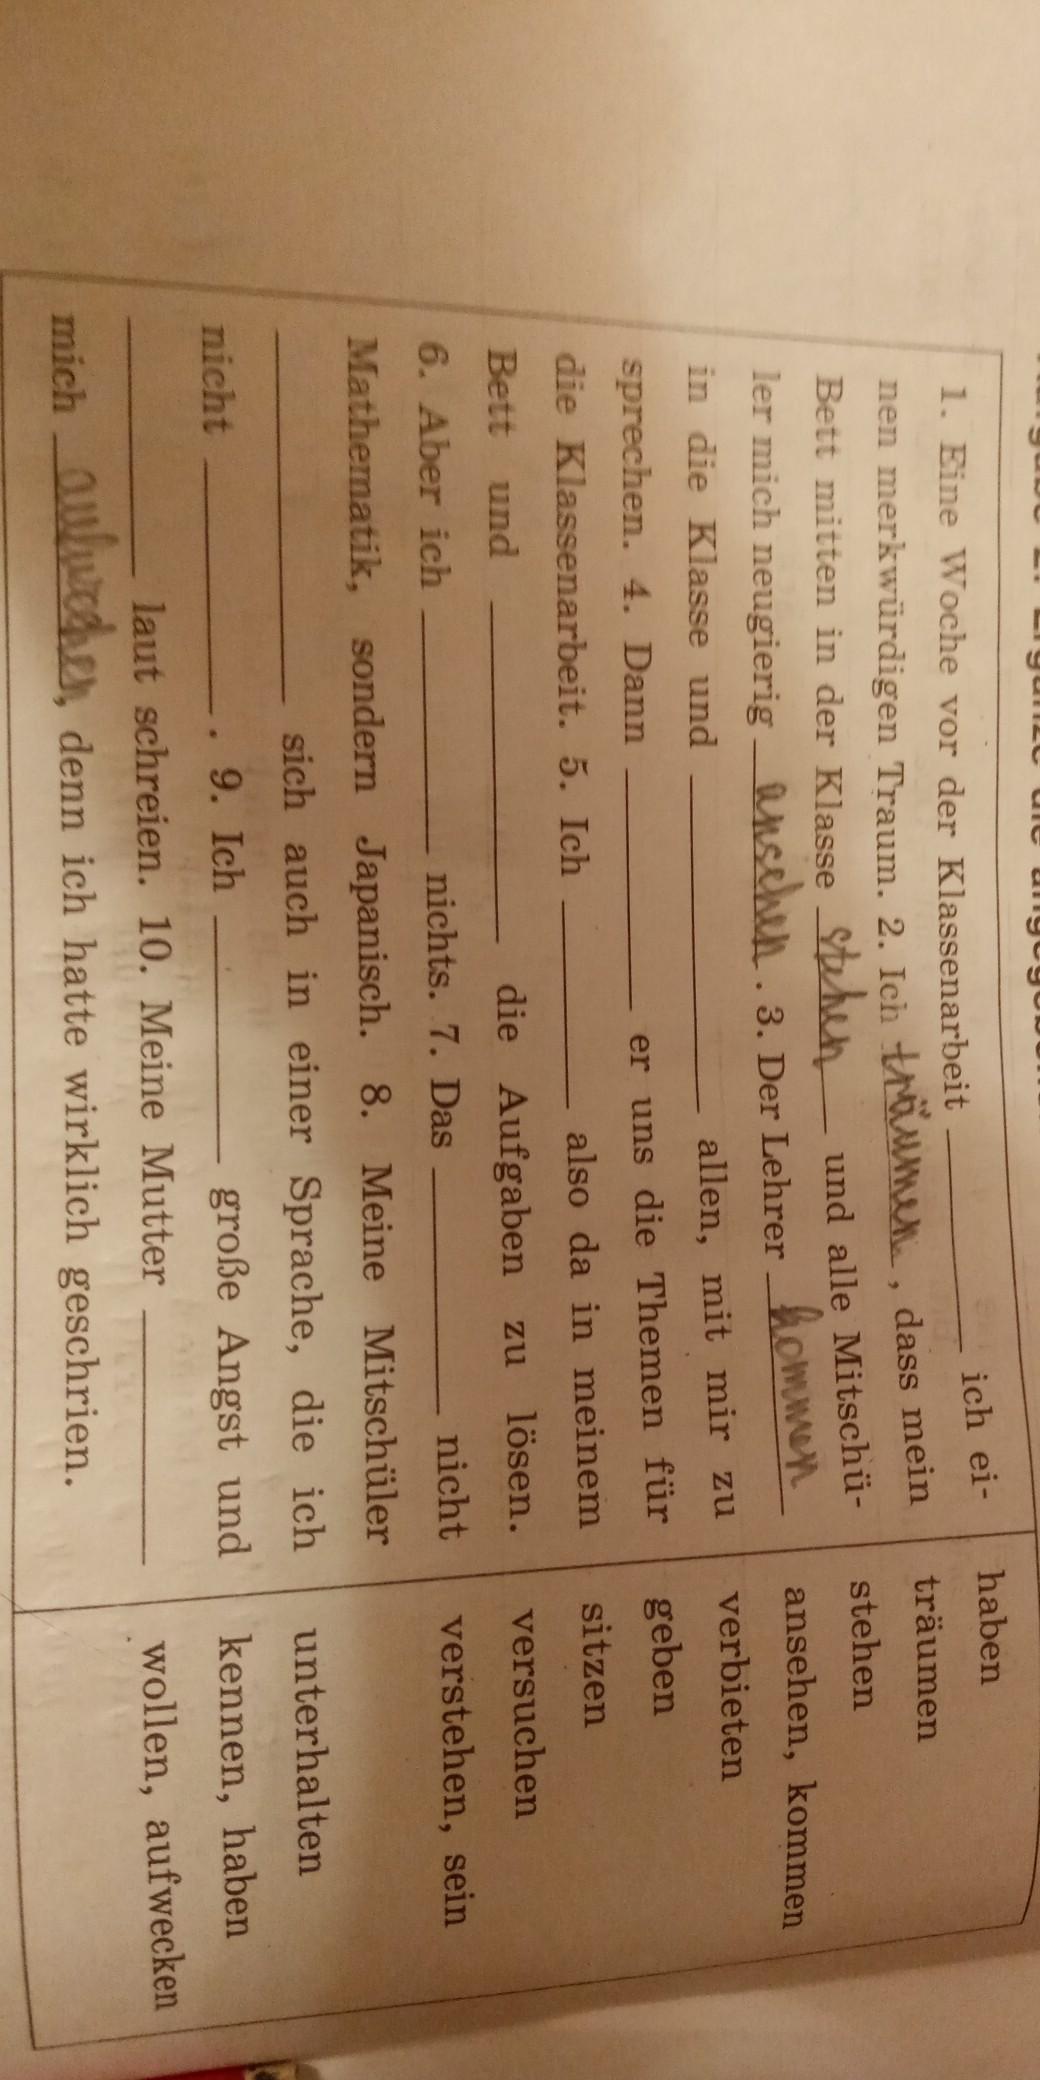 1. Eine Woche vor der Klassenarbeit ________ ich ei- haben
nen merkwürdigen Traum. 2. Ich träumen, dass mein träumen
Bett mitten in der Klasse stehen und alle Mitschü- stehen
ler mich neugierig ansehen. 3. Der Lehrer kommen ansehen, kommen
in die Klasse und ________ allen, mit mir zu verbieten
sprechen. 4. Dann ________ er uns die Themen für geben
die Klassenarbeit. 5. Ich ________ also da in meinem sitzen
Bett und ________ die Aufgaben zu lösen. versuchen
6. Aber ich ________ nichts. 7. Das ________ nicht verstehen, sein
Mathematik, sondern Japanisch. 8. Meine Mitschüler
________ sich auch in einer Sprache, die ich unterhalten
nicht ________. 9. Ich ________ große Angst und kennen, haben
________ laut schreien. 10. Meine Mutter ________ wollen, aufwecken
mich, denn ich hatte wirklich geschrien.